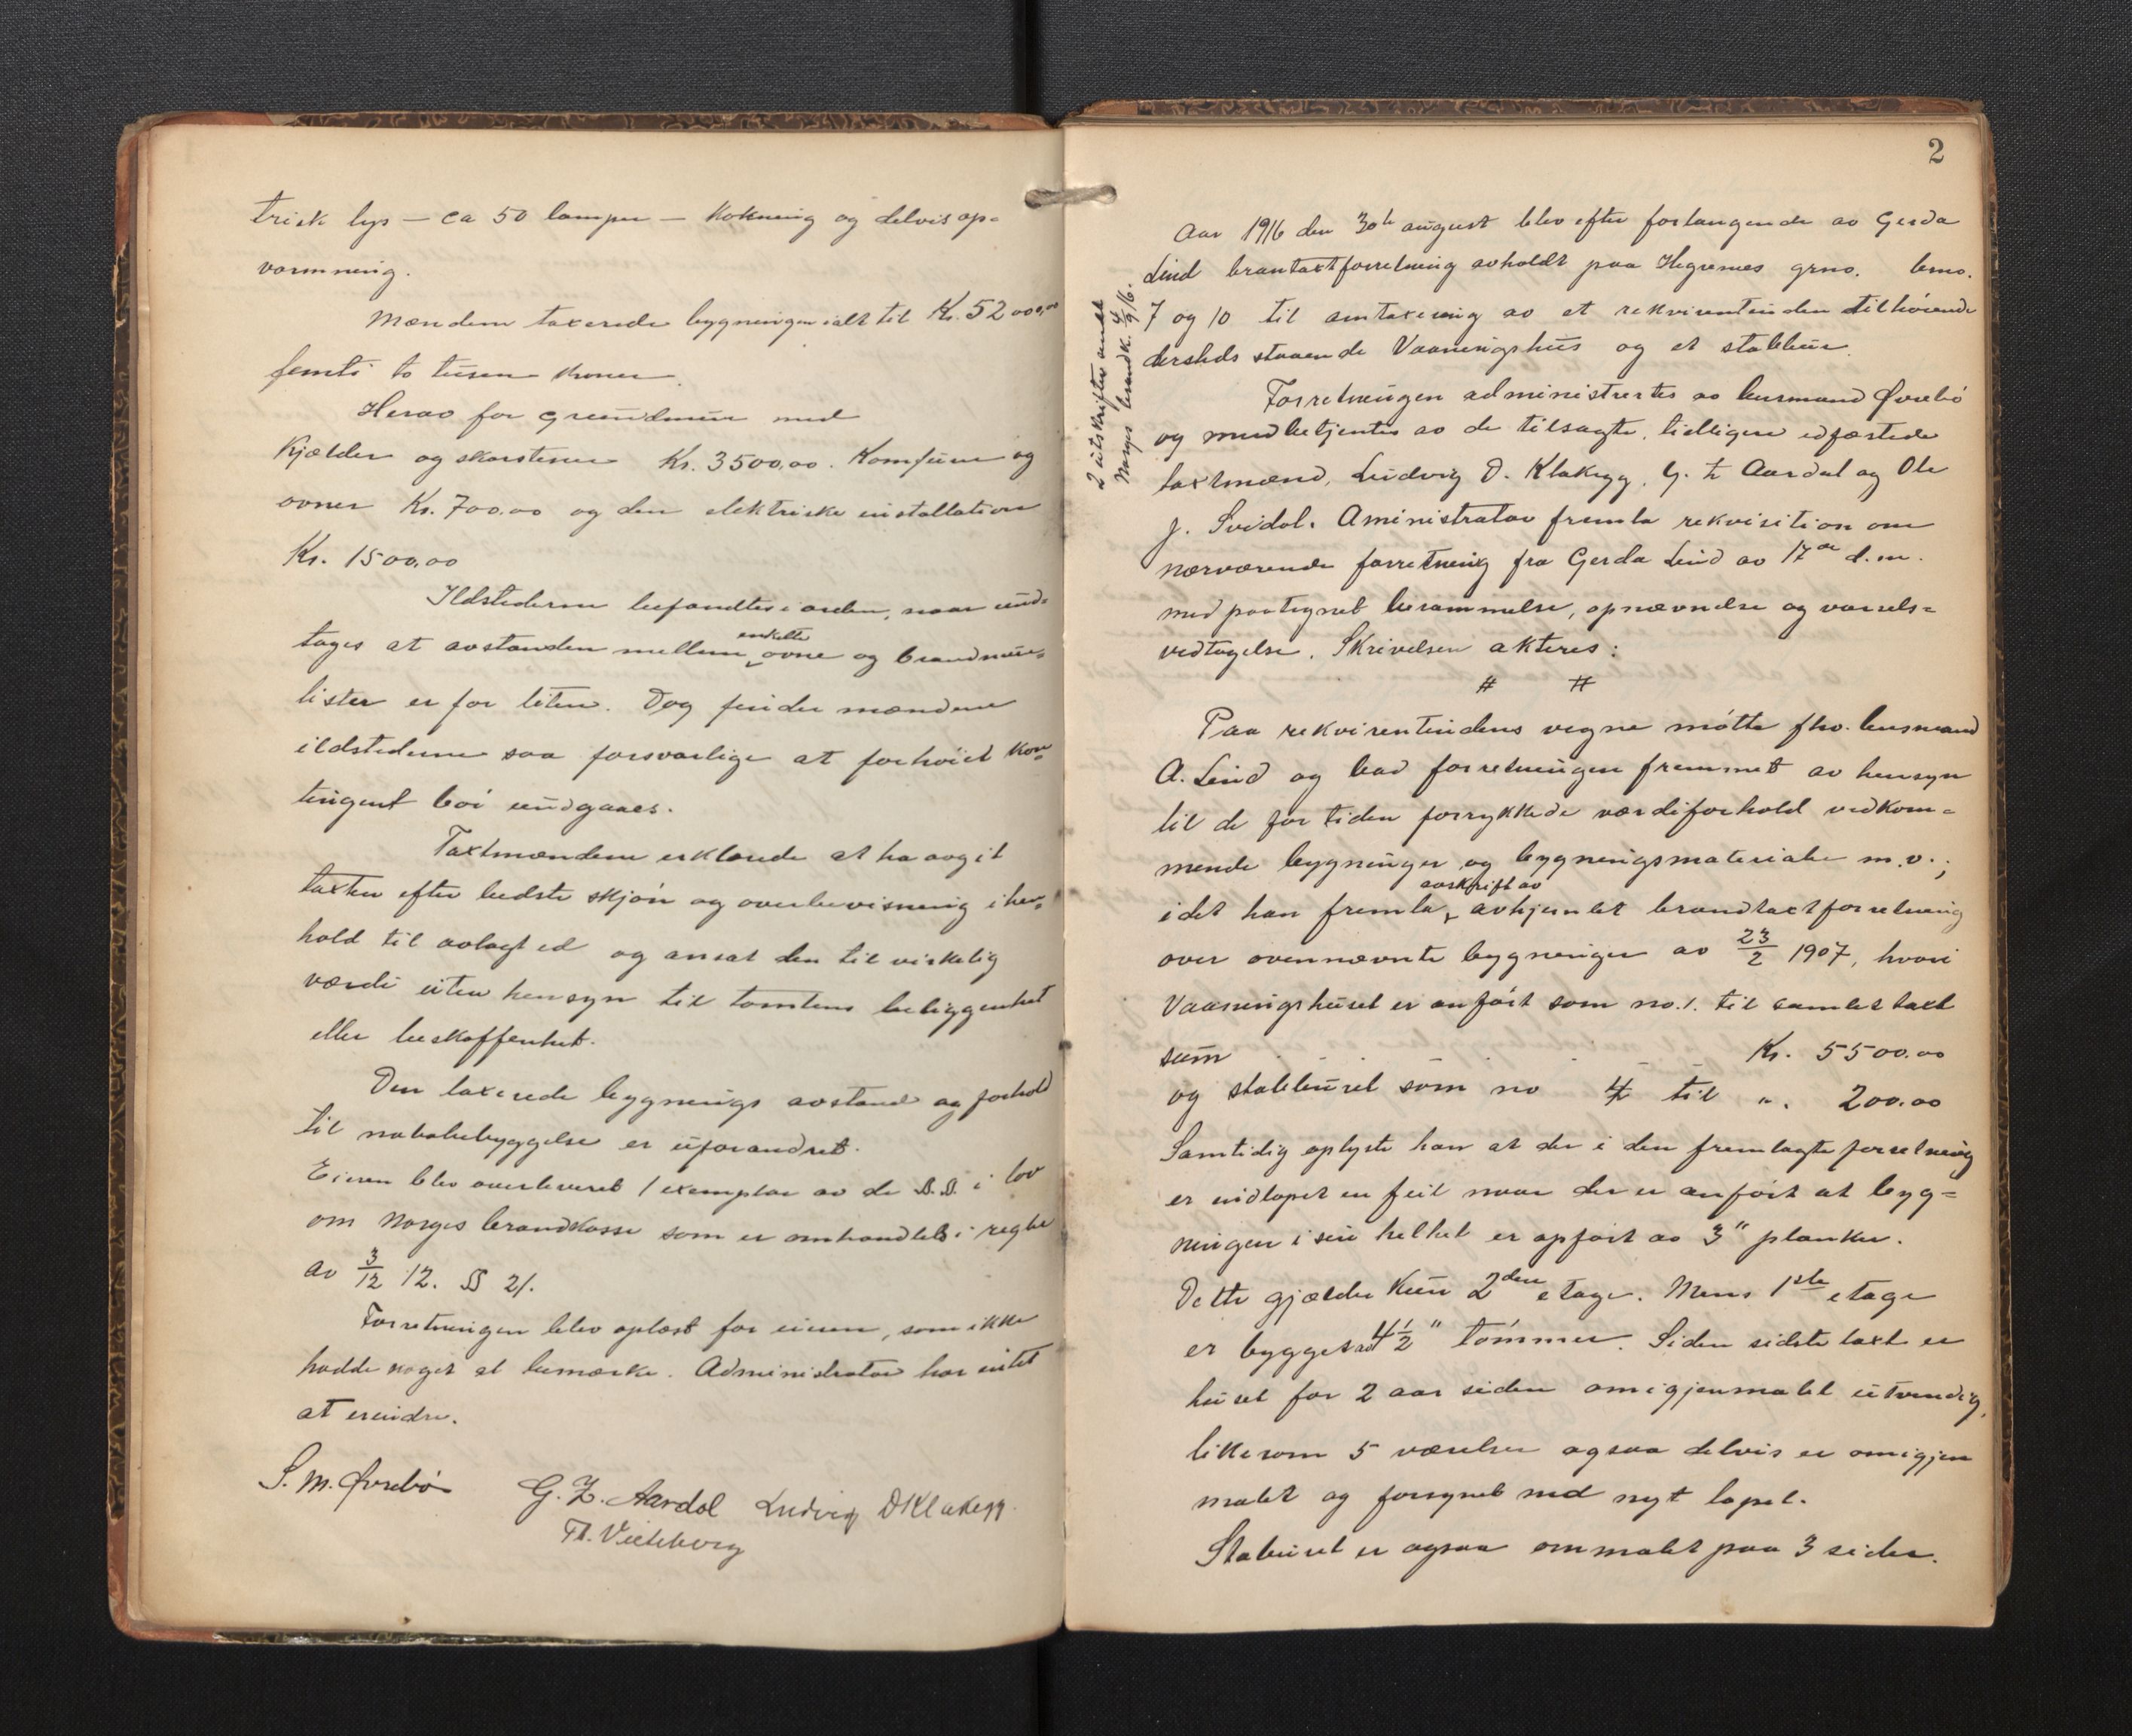 trisk lys – ca 50 lamper – kokning og delvis op-
varmning.
Mændene taxerede bygningen ialt til Kr. 52000,00
femti to tusen kroner.
Herav for grundmur med
kjælder og skorstener Kr. 3500,00. Komfure og
ovner Kr. 700.00 og den elektriske installation
Kr. 1500,00
Ildstederne befandtes i orden, naar und-
tages at avstanden mellem enkelte ovne og brandmur-
lister er for liten. Dog finder mændene
ildstederne saa forsvarlige at forhöiet kon-
tingent bör undgaaes.
Taxtmændene erklærede at ha avgit
taxten efter bedste skjön og overbevisning i hen-
hold til avlagt ed og ansat den til virkelig
værdi uten hensyn til tomtens beliggenhet
eller beskaffenhet.
Den taxerede bygnings avstand og forhold
til nabobebyggelse er uforandret.
Eieren blev overleveret 1 exemplar av de §.§. i lov
om Norges brandkasse som er omhandlet i regler
av 3/12 12. §§ 21.
Forretningen blev oplæst for eieren, som ikke
hadde noget at bemærke. Administrator har intet
at erindre.
S. M. Øvrebö G. Z. Aardal Ludvig D Klakegg.
2
2 utskrifter sendt
Norges brandk. 4/9 16.
Aar 1916 den 30te august blev efter forlangende av Gerda
Lind brantaxtforretning avholdt paa Hegrenes grno. brno.
7 og 10 til omtaxering av et rekvirentinden tilhörende
dersteds staaende Vaaningshus og et stabbur.
Forretningen administrertes av lensmand Øvrebö
og medbetjentes av de tilsagte, tidligere edfæstede
taxtmænd, Ludvig D. Klakegg, G. Z. Aardal og Ole
J. Svidal. Aministrator fremla rekvisition om
nærværende forretning fra Gerda Lind av 17de d.m.
med paategnet berammelse, opnævnelse og varsels-
vedtagelse. Skrivelsen akteres:
# #
Paa rekvirentindens vegne mötte fhv. lensmand
A. Lind og bad forretningen fremmet av hensyn
til de for tiden forrykkede værdiforhold vedkom-
mende bygninger og bygningsmaterialer m.v.;
idet han fremla avskrift av avhjemlet brandtaxtforretning
over ovennævnte bygninger av 23/2 1907, hvori
Vaaningshuset er anfört som no. 1. til samlet taxt
sum Kr. 5500.00
og stabburet som no 4 til ". 200.00
Samtidig oplyste han at der i den fremlagte forretning
er indlöpet en feil naar der er anfört at byg-
ningen i sin helhet er opfört av 3" planker.
Dette gjælder kun 2den etage. Mens 1ste etage
er bygget av 4 1/2" tömmer. Siden sidste taxt er
huset for 2 aar siden omigjenmalet utvendig,
likesom 5 værelser ogsaa delvis er omigjen
malet og forsynet med nyt tapet.
Staburet er ogsaa ommalet paa 3 sider.